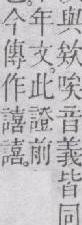 與欸唉音義皆同
年文。此證前
今傳作譆譆。